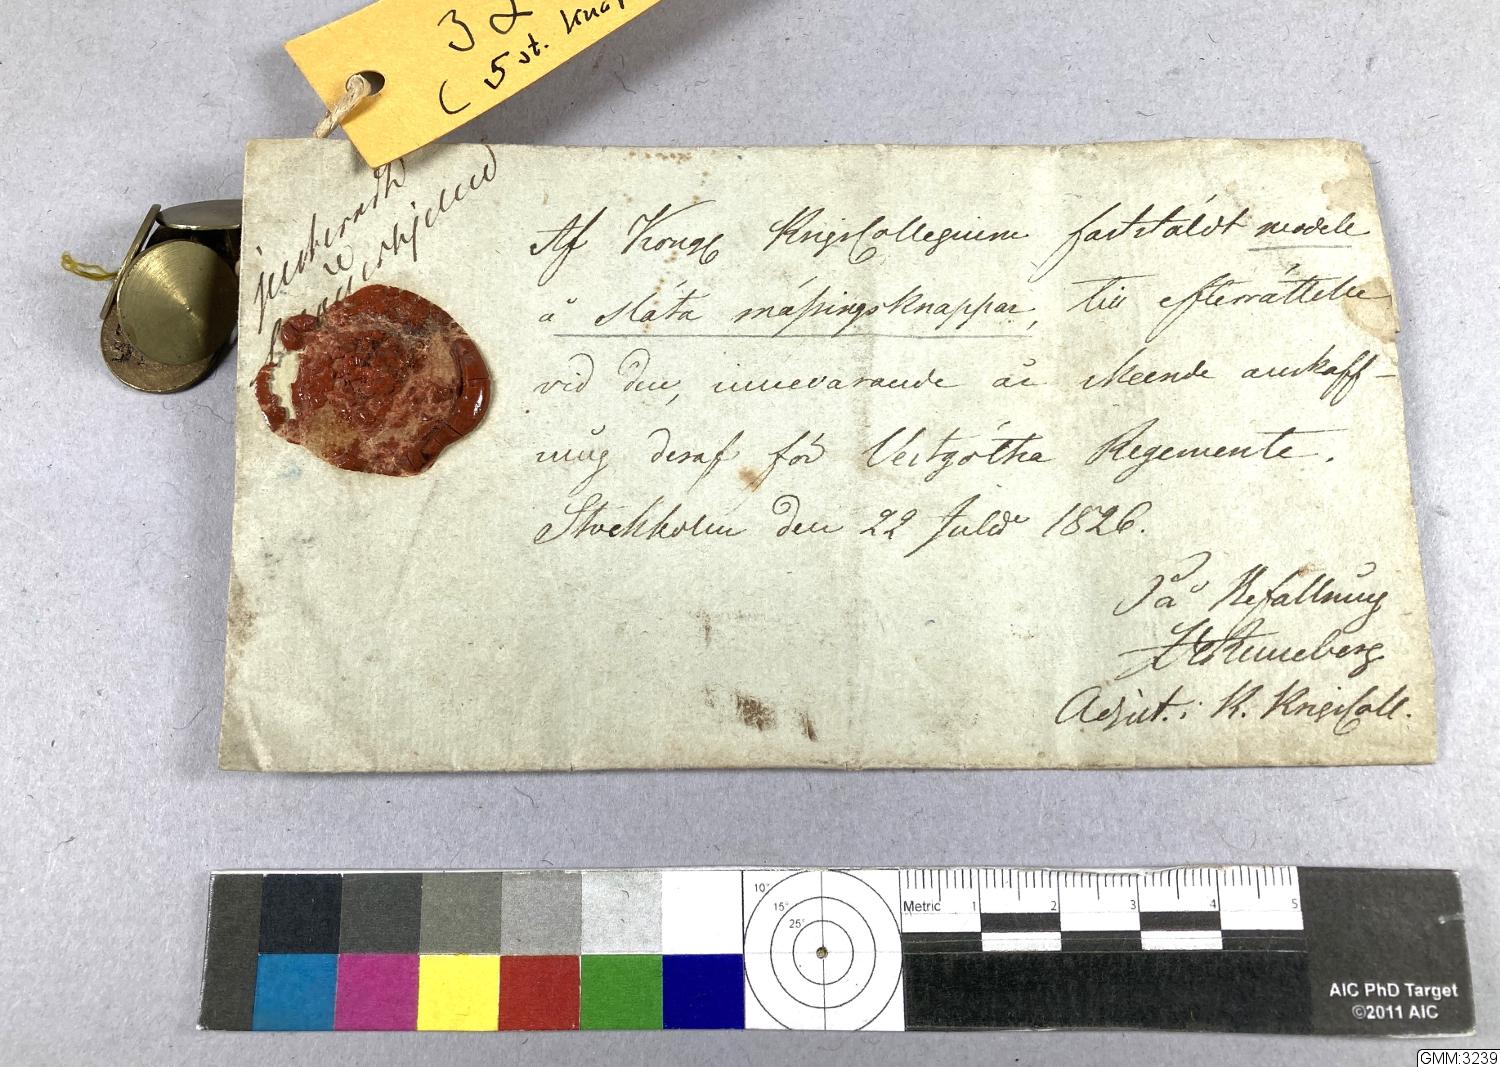 32
(5 st. knap
Af Kongl KrigsCollegium fastställdt modele
å släta mässingsknappar, till efterrättelse
vid den, innevarande år skeende anskaff-
ning deraf för Vestgötha Regemente.
Stockholm den 22 Julii 1826.
På Befallning
Adjut. i K. KrigsColl.
Metric 1 2 3 4 5
10°
15°
25°
AIC PhD Target
©2011 AIC
GMM:3239